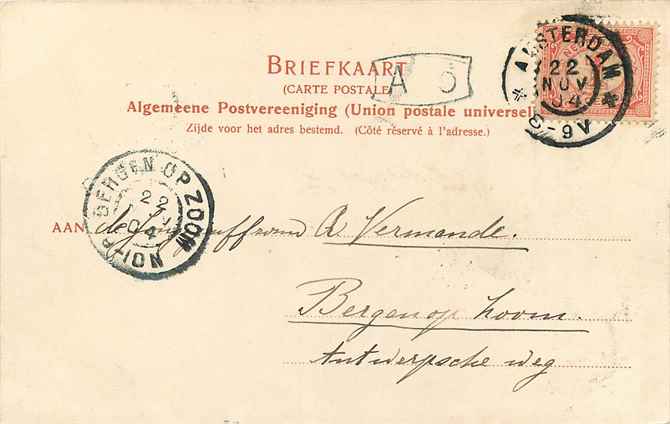 BRIEFKAART
(CARTE POSTALE)
Algemeene Postvereeniging (Union postale universelle)
Zijde voor het adres bestemd. (Côté réservé à l'adresse.)
A 5
AMSTERDAM
22
NOV
04
8-9V
BERGEN OP ZOOM
22
04
AAN de Jongejuffrouw A Vermande.
Bergen op Zoom.
Antwerpsche weg